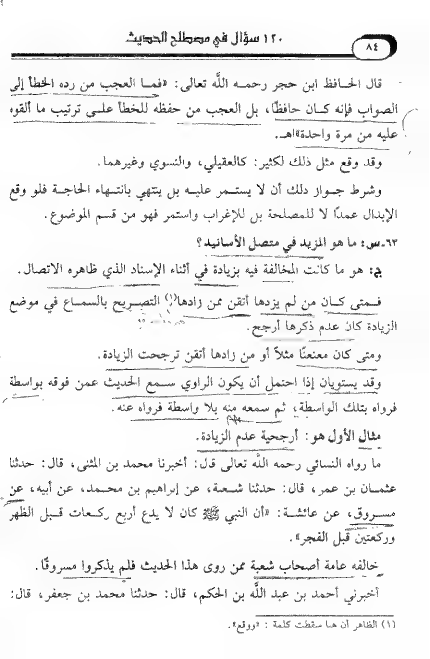 ١٢٠ سؤال في مصطلح الحديث
٨٤
قال الحافظ ابن حجر رحمه اللَّه تعالى: «فما العجب من رده الخطأ إلى
الصواب فإنه كان حافظًا، بل العجب من حفظه للخطأ على ترتيب ما ألقوه
عليه من مرة واحدة» اهـ.
وقد وقع مثل ذلك لكثير: كالعقيلي، والنسوي وغيرهما.
وشرط جواز ذلك أن لا يستمر عليه بل ينتهي بانتهاء الحاجة فلو وقع
الإبدال عمدًا لا للمصلحة بل للإغراب واستمر فهو من قسم الموضوع.
٦٣-س: ما هو المزيد في متصل الأسانيد؟
ج: هو ما كانت المخالفة فيه بزيادة في أثناء الإسناد الذي ظاهره الاتصال.
فمتى كان من لم يزدها أتقن ممن زادها(١) التصريح بالسماع في موضع
الزيادة كان عدم ذكرها أرجح.
ومتى كان معنعنًا مثلاً أو من زادها أتقن ترجحت الزيادة.
وقد يستويان إذا احتمل أن يكون الراوي سمع الحديث عمن فوقه بواسطة
فرواه بتلك الواسطة، ثم سمعه منه بلا واسطة فرواه عنه.
مثال الأول هو: أرجحية عدم الزيادة.
ما رواه النسائي رحمه اللَّه تعالى قال: أخبرنا محمد بن المثنى، قال: حدثنا
عثمان بن عمر، قال: حدثنا شعبة، عن إبراهيم بن محمد، عن أبيه، عن
مسروق، عن عائشة: «أن النبي ﷺ كان لا يدع أربع ركعات قبل الظهر
وركعتين قبل الفجر».
خالفه عامة أصحاب شعبة ممن روى هذا الحديث فلم يذكروا مسروقًا.
أخبرني أحمد بن عبد اللَّه بن الحكم، قال: حدثنا محمد بن جعفر، قال:
(١) الظاهر أن هنا سقطت كلمة : «ووقع».